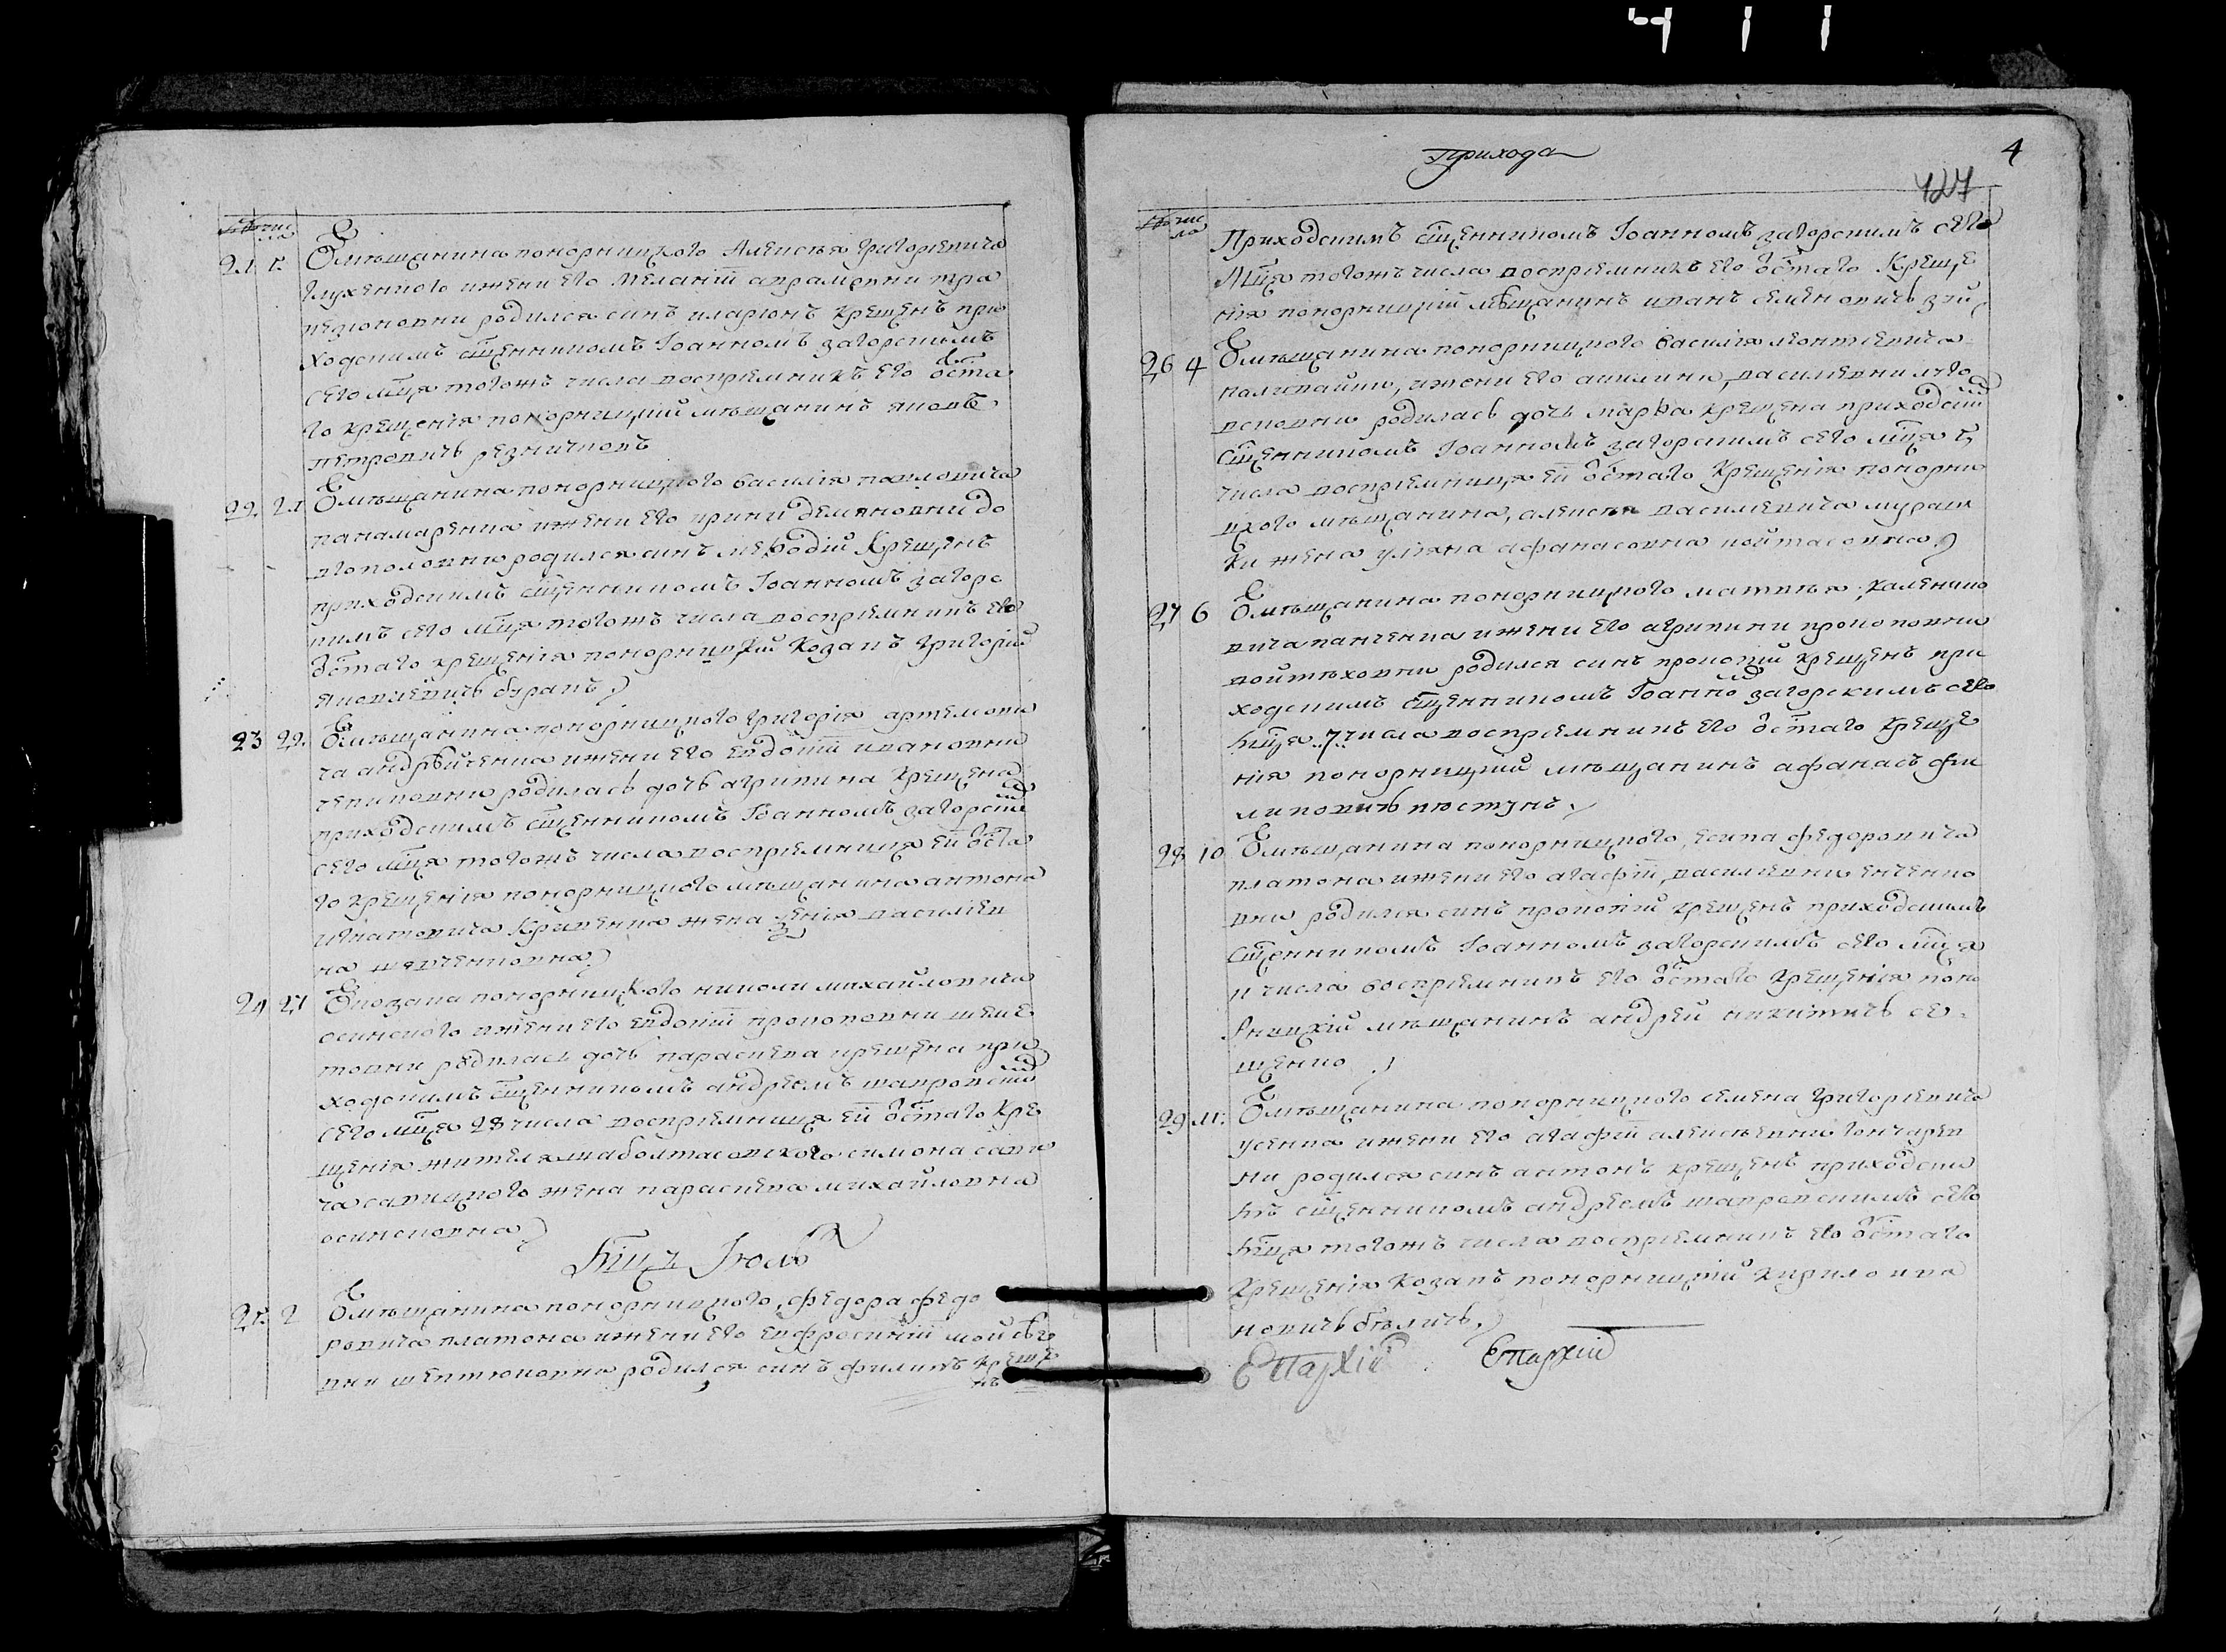 число
21 5. У мѣщанина понорницкого Алексѣя григориевича
глухенкого ижени его Меланіи авраамовни тра
пезионовни родился синъ иларіонъ крещенъ при
ходскимъ сщенникомъ Іоанномъ загорскимъ
сего мца тогожъ числа воспріемникъ его ѿ ста
го крещенія понорницкій мѣщанинъ яковъ
петровичъ резничковъ
22. 21 У мѣщанина понорницкого василія павловича
панамаренка ижени его ирини демяновни до
вгополовни родился синъ меѳодій Крещенъ
приходскимъ сщенникомъ Іоанномъ загорс
кимъ сего мца тогожъ числа воспріемникъ его
ѿ стаго крещенія понорницкій козакъ григорій
яковлевичъ буракъ
23 22. У мѣщанина понорницкого григорія артемови
ча андрѣйченка ижени его евдокіи ивановни
родилась дочь агрипина крещена
приходскимъ сщенникомъ Іоанномъ загорским
сего мца тогожъ числа воспріемница ей ѿ ста
го крещенія понорницкого мѣщанина антона
игнатовича Кривенка жена ксенія василіев
на шевченковна
24 27 У козака понорницкого николи михайловича
осинского ижени его евдокіи прокоповни шеме
товни родилась дочь параскева крещена при
ходскимъ сщенникомъ андреемъ шавровским
сего мца 28 числа воспріемница ей ѿ стаго Кре
щенія жителя шаболтасовского симона сави
ча савицкого жена параскева михайловна
осинсковна
Мцъ Іюль
25. 2 У мѣщанина понорницкого, федора федо
ровича платона ижени его евфросиніи мойсѣе
вни шептюковни родился синъ филипъ креще
нъ
прихода
4
427
число
Приходскимъ сщенникомъ Іоанномъ загорскимъ сего
Мца тогожъ числа воспріемникъ его ѿ стаго Креще
нія понорницкій мѣщанинъ иванъ семеновичъ
26 4 У мѣщанина понорницкого василія леонтіевича
ижени его акилини, василіевни
родилась дочь марѳа крещена приходским
сщенникомъ Іоанномъ загорскимъ сего мца 5
числа воспріемница ей ѿ стаго Крещенія понорни
цкого мѣщанина, алексѣя василиевича мураш
ки жена уліяна афанасовна койтасовна
27 6 У мѣщанина понорницкого матвѣя, калѣнико
вича панченка ижени его агрипини прокоповни
войтѣховни родился синъ прокопій крещенъ при
ходскимъ сщенникомъ Іоанном загорскимъ сего
мца 7 числа воспріемникъ его ѿ стаго креще
нія понорницкій мѣщанинъ афанасъ фи
липовичъ
28 10 У мѣщанина понорницкого, есипа федоровича
платона ижени его агафіи, василіевни енченко
вни родился синъ прокопій крещенъ приходскимъ
сщенникомъ Іоанномъ загорскимъ сего мца
11 числа воспріемникъ его ѿ стаго крещенія поно
рницкій мѣщанинъ андрей никитичъ се
щенко
29 11. У мѣщанина понорницкого семена григориевича
усенка ижени его агафіи алексѣевни гончарев
ни родился синъ антонъ крещенъ приходски
мъ сщенникомъ андреемъ шавровскимъ сего
мца тогожъ числа воспріемникъ его ѿ стаго
Крещенія Козакъ понорницкій кирило ива
новичъ бѣличъ
Епархій Епархій